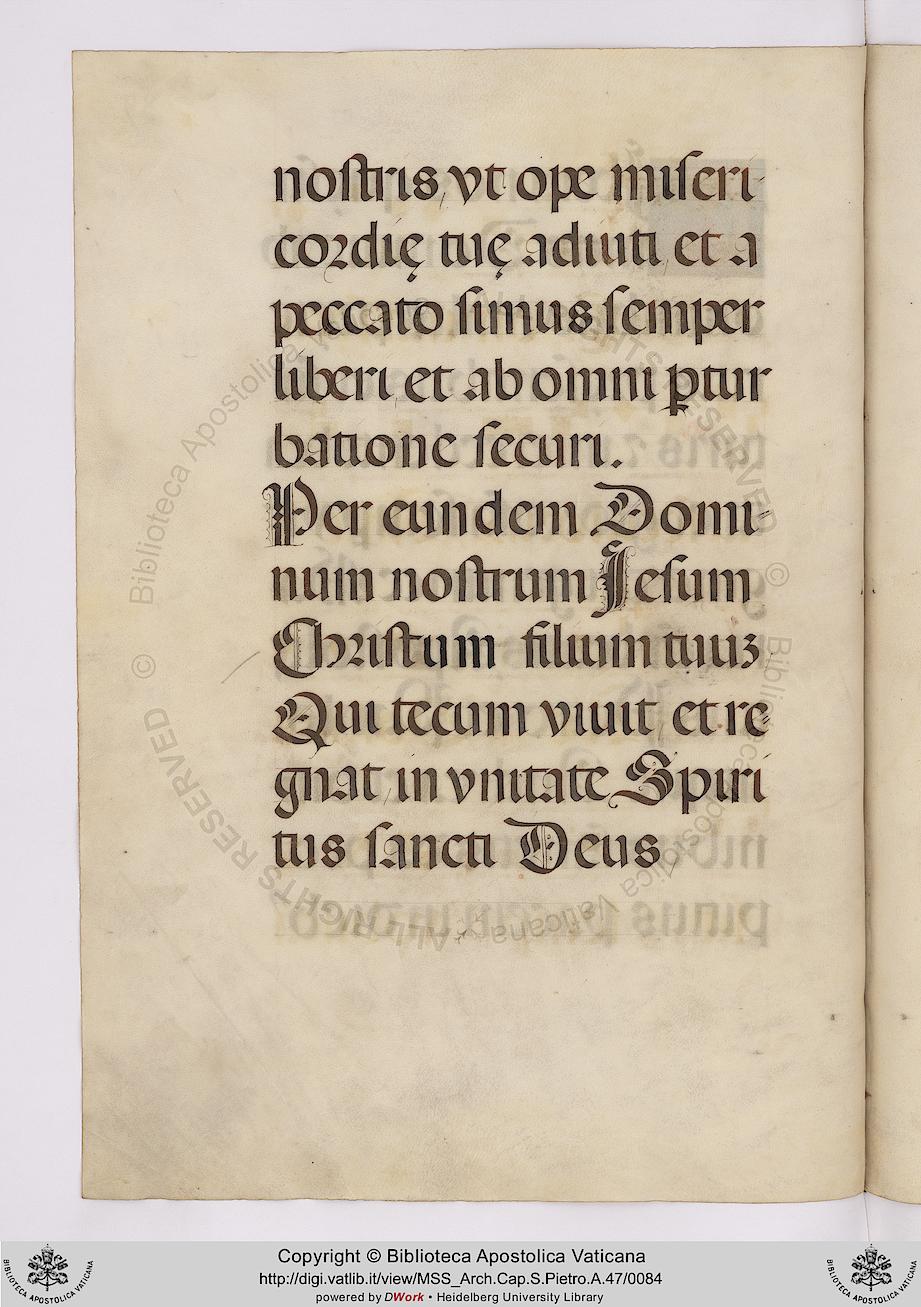 nostris, vt ope miseri-
cordię tuę adiuti, et a
peccato simus semper
liberi, et ab omni ꝑtur
batione securi.
Per eundem Domi-
num nostrum Jesum
Christum filium tuuȝ
Qui tecum viuit, et re-
gnat, in vnitate Spiri
tus sancti Deus,
Biblioteca Apostolica Vaticana
ALL RIGHTS RESERVED
©
Copyright © Biblioteca Apostolica Vaticana
http://digi.vatlib.it/view/MSS_Arch.Cap.S.Pietro.A.47/0084
powered by DWork • Heidelberg University Library
BIBLIOTECA APOSTOLICA VATICANA
BIBLIOTECA APOSTOLICA VATICANA